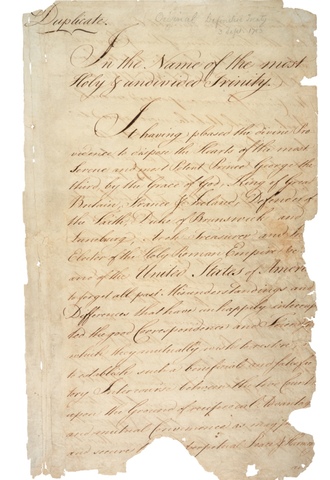 Duplicate.
Original Definitive Treaty
3 Sept. 1783
In the Name of the most
Holy & undivided Trinity.
It having pleased the divine Pro
vidence to dispose the Hearts of the most
Serene and most Potent Prince George the
third, by the Grace of God, King of Great
Britain, France & Ireland, Defender of
the Faith, Duke of Brunswick and
Lunebourg, Arch Treasurer, and
Elector of the Holy Roman Empire &c
and of the United States of Ameri
to forget all past Misunderstandings and
Differences that have unhappily interrup
ted the good Correspondence and Friends
which they mutually wish to restore;
to establish such a beneficial and satisfac
tory Intercourse between the two Count
upon the Ground of reciprocal Advanta
and mutual Convenience as may
and secure perpetual Peace & Harmon